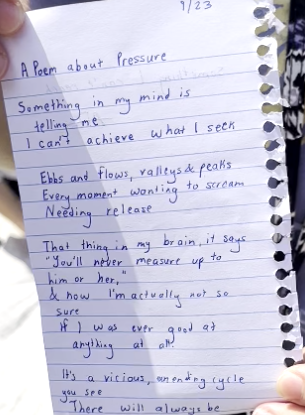 9/23
A Poem about Pressure
Something in my mind is
telling me
I can't achieve what I seek
Ebbs and flows, valleys & peaks
Every moment wanting to scream
Needing release
That thing in my brain, it says
"You'll never measure up to
him or her,"
& now I'm actually not so
sure
If I was ever good at
anything at all.
It's a vicious, unending cycle
you see
There will always be